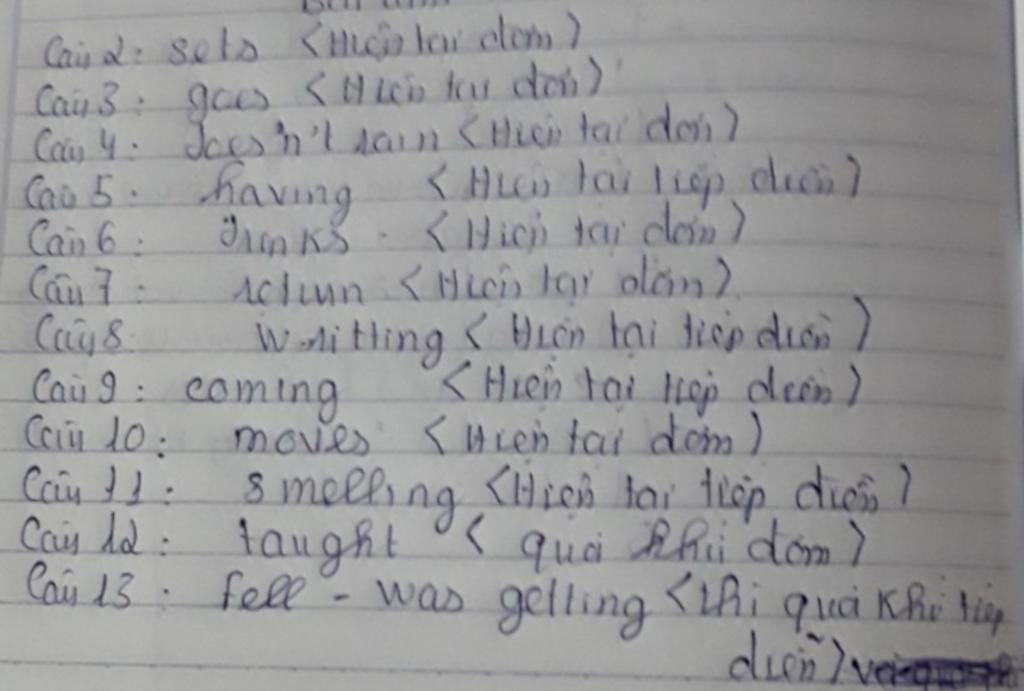 Câu 2: sets <Hiện tại đơn>
Câu 3: goes <Hiện tại đơn>
Câu 4: doesn't rain <Hiện tại đơn>
Câu 5: having <Hiện tại tiếp diễn>
Câu 6: drinks <Hiện tại đơn>
Câu 7: return <Hiện tại đơn>
Câu 8 writting <Hiện tại tiếp diễn>
Câu 9: coming <Hiện tại tiếp diễn>
Câu 10: moves <Hiện tại đơn>
Câu 11: smelling <Hiện tại tiếp diễn>
Câu 12: taught < quá khứ đơn>
Câu 13: fell - was getting <thì quá khứ tiếp
diễn>